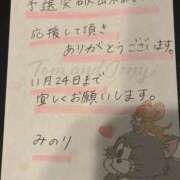 応援して頂き
ありがとうございます。
11月24日まで
宜しくお願いします。
みのり
Tom and Jerry